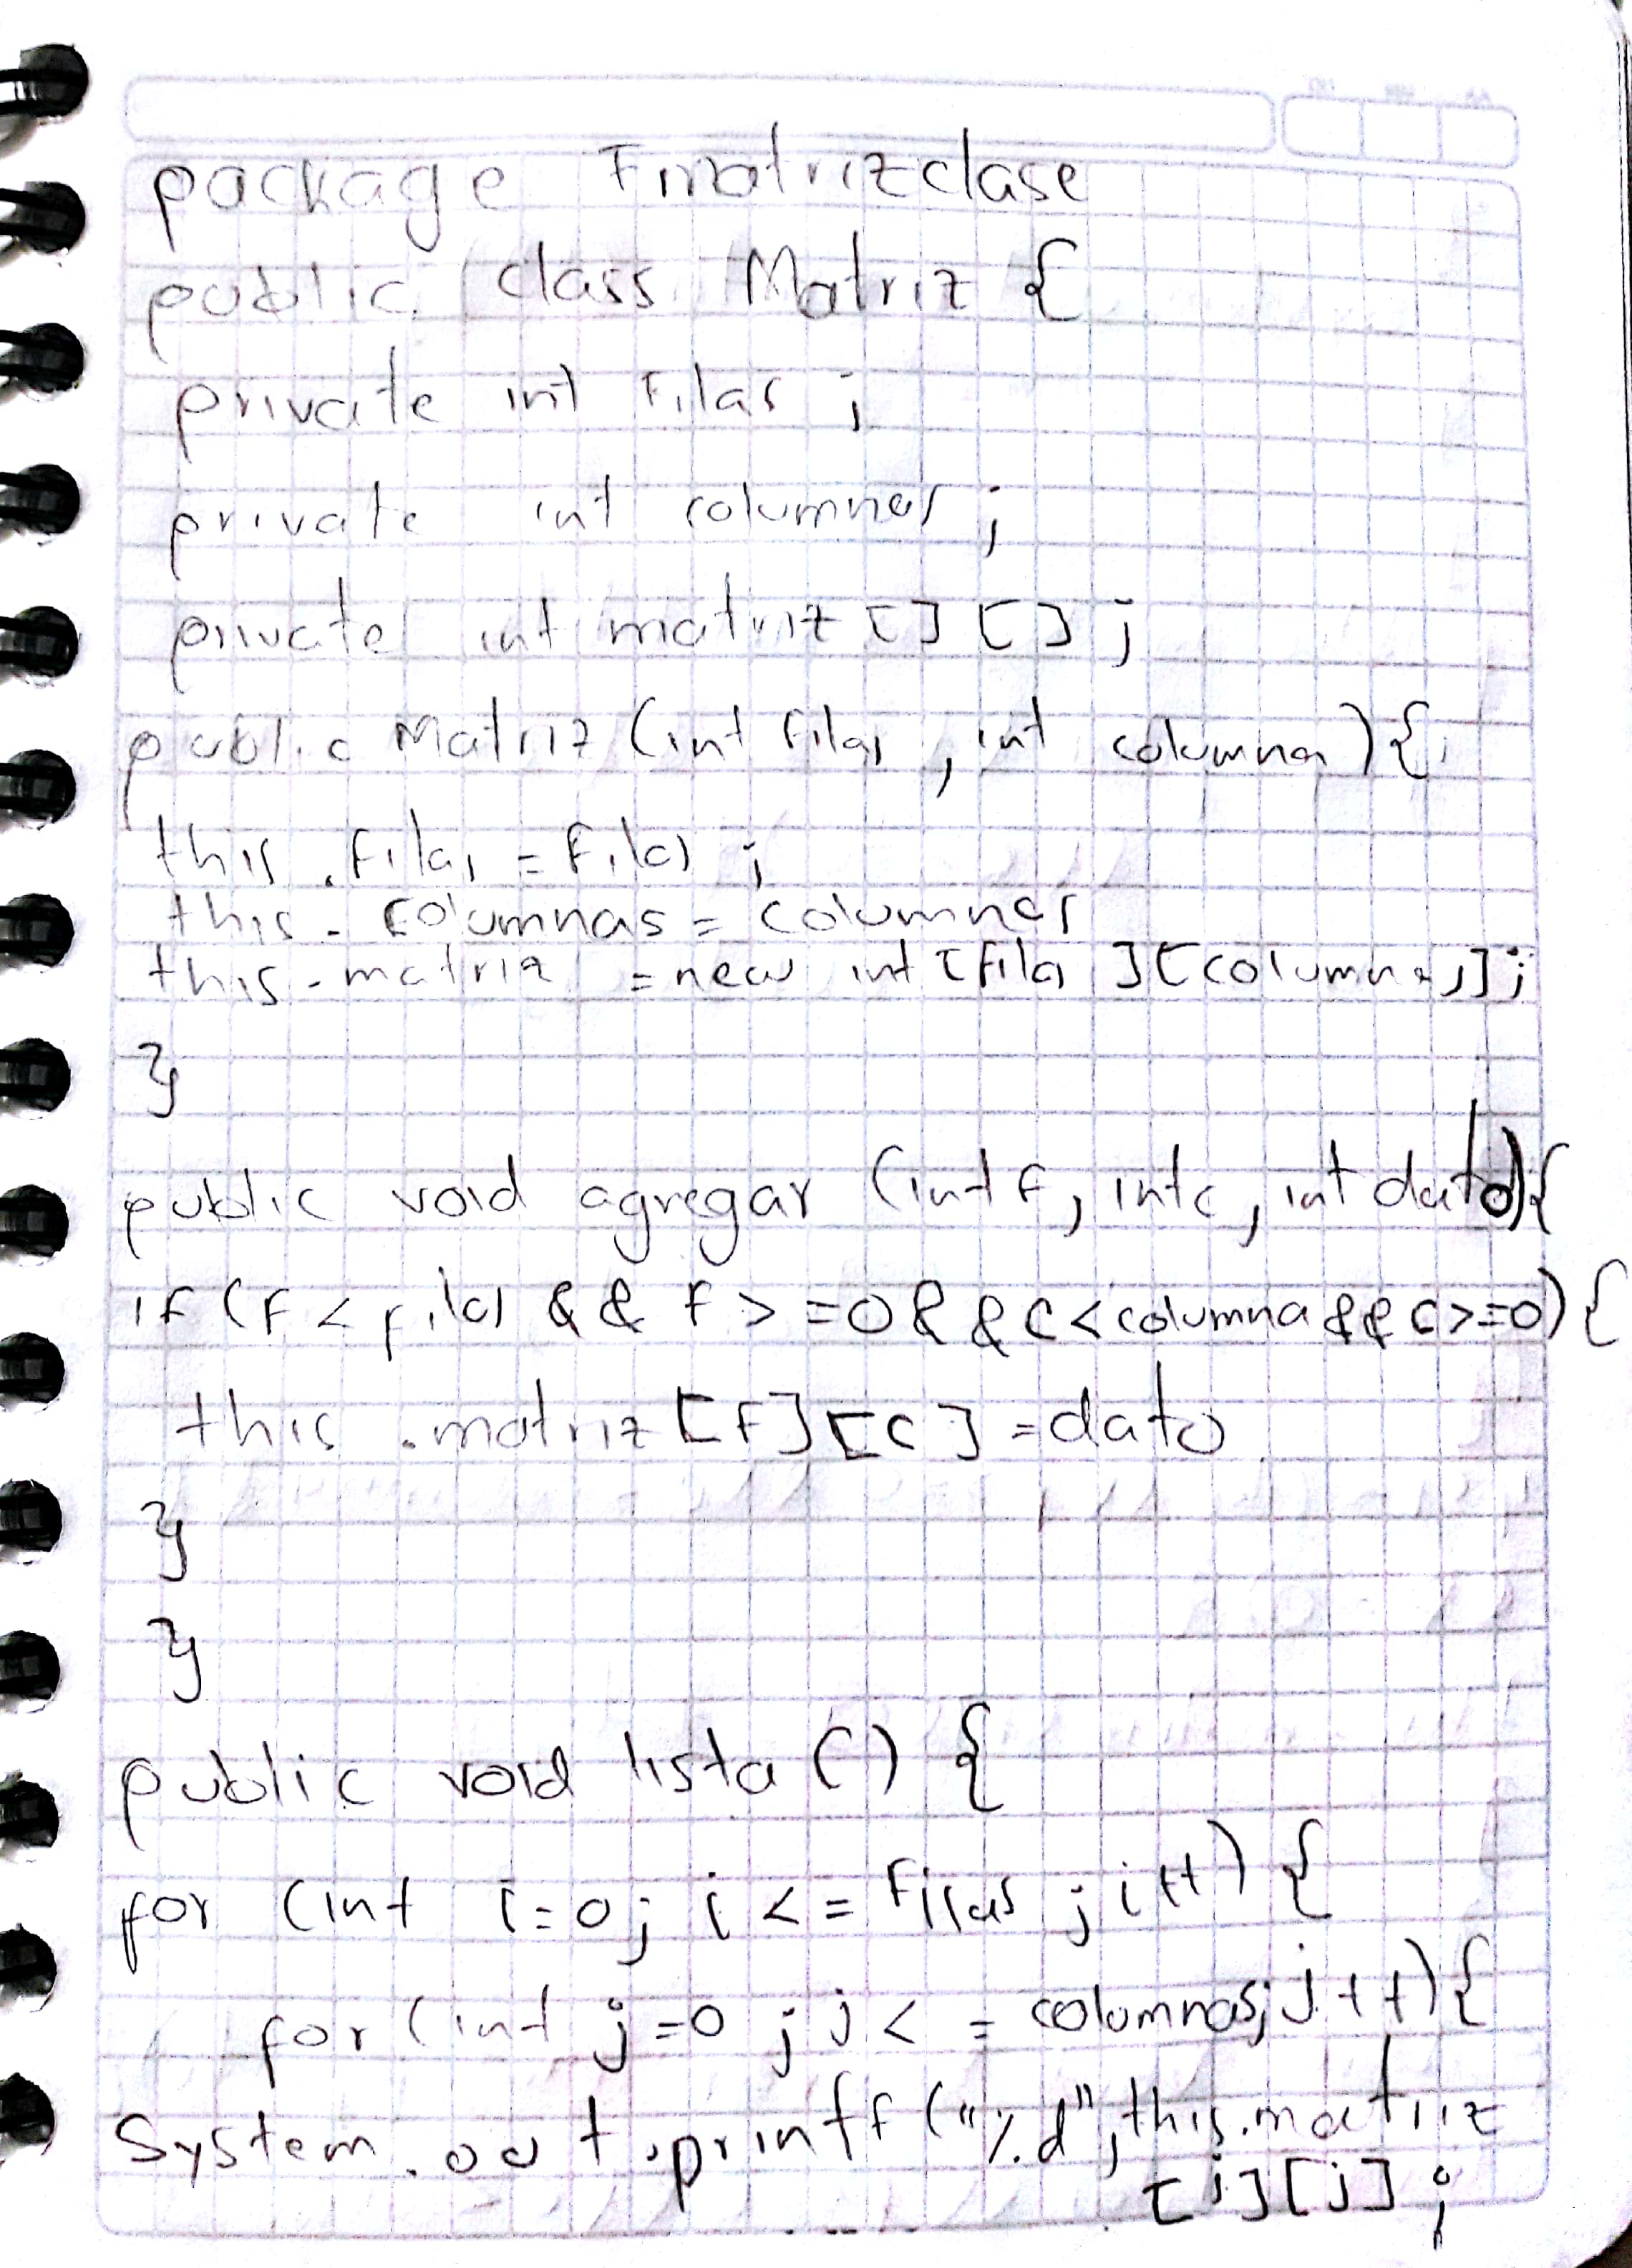 package Fmatrizclase
public class Matriz {
private int Filas ;
private int columnas ;
private int matriz [ ] [ ] ;
public Matriz (int filas , int columnas ) {
this . filas = filas ;
this . columnas = columnas
this . matriz = new int [filas ][columnas] ;
}
public void agregar (int f, int c, int dato){
if (f < filas && f > =0 && c < columna && c >=0) {
this . matriz [f] [c ] = dato
}
}
public void lista ( ) {
for (int i=0; i < = Filas ; i++) {
for (int j=0 ; j < = columnas; j++) {
System . out . printf ("%d", this.matriz
[i][j] ;